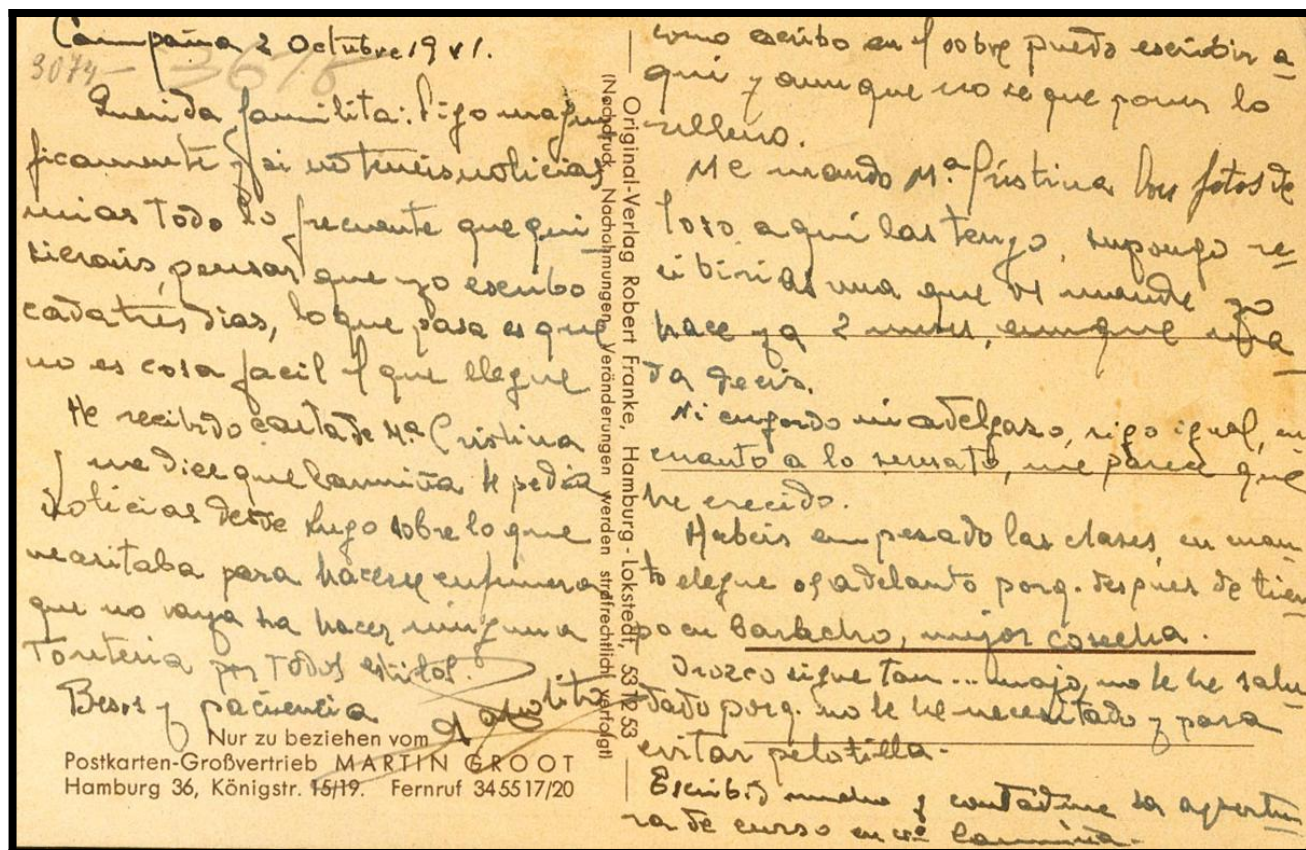 Campaña 2 Octubre 1941.
3074 - 3678
Querida familita: Sigo magni
ficamente y si no teneis noticias
mias todo lo frecuente que qui
sierais, pensar que yo escribo
cada tres dias, lo que pasa es que
no es cosa facil el que llegue
He recibido carta de Mª Cristina
y me dice que Carmiña le pedia
noticias desde Lugo sobre lo que
necesitaba para hacerse enfermera
que no vaya ha hacer ninguna
Tonteria por Todos estilos.
Besos y paciencia
Nur zu beziehen vom
Postkarten-Großvertrieb MARTIN GROOT
Hamburg 36, Königstr. 15/19. Fernruf 34 55 17/20
(Nachdruck, Nachahmungen, Veränderungen werden strafrechtlich verfolgt)
Original-Verlag Robert Franke, Hamburg-Lokstedt, 53 12 53
como escribo en el sobre puedo escribir a
qui y aunque no se que poner lo
relleno.
Me mando Mª Cristina las fotos de
Toro aqui las tengo, supongo re
cibirias una que os mande yo
hace ya 2 meses, aunque na
da decis.
Ni engordo ni adelgazo, sigo igual, en
cuanto a lo sensato, me parece que
he crecido.
Habeis empezado las clases, en cuan
to llegue os adelanto porq. despues de tiem
po en barbecho, mejor cosecha.
Orozco sigue tan ... majo, no le he salu
dado porq. no le he necesitado y para
evitar pelotilla.
Escribid mucho y contadme la apertu
ra de curso en Carmiña.